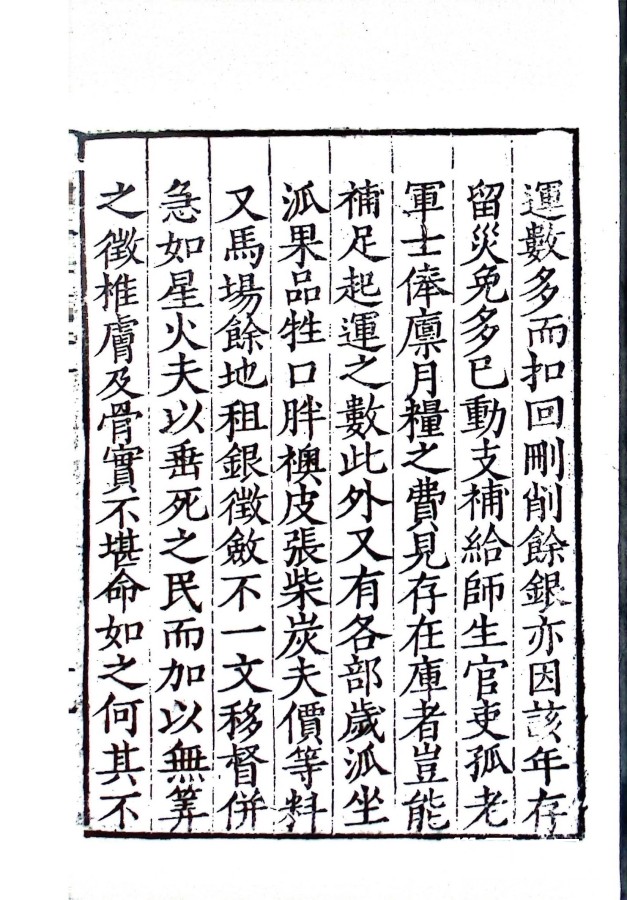 運數多而扣回刪削餘銀亦因該年存
留災免多已動支補給師生官吏孤老
軍士俸廪月糧之費見存在庫者豈能
補足起運之數此外又有各部歲派坐
派果品牲口胖襖皮張柴炭夫價等料
又馬場餘地租銀徵斂不一文移督併
急如星火夫以垂死之民而加以無筭
之徵椎膚及骨實不堪命如之何其不